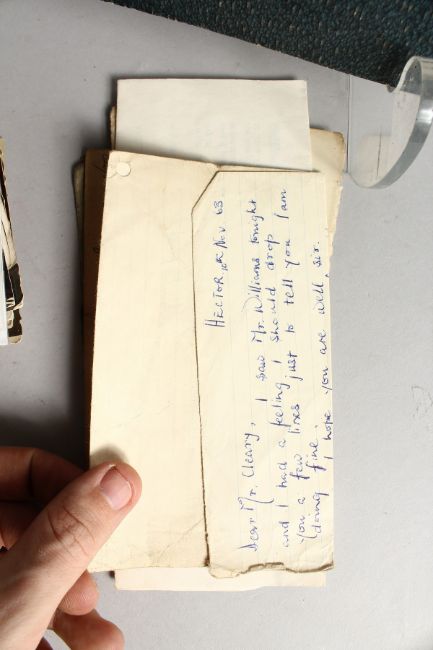 HECTOR 10th Nov. 63
Dear Mr. Cleary, I saw Mr. Williams tonight
and I had a feeling I should drop
you a few lines just to tell you I am
doing fine.
I hope you are well, sir.